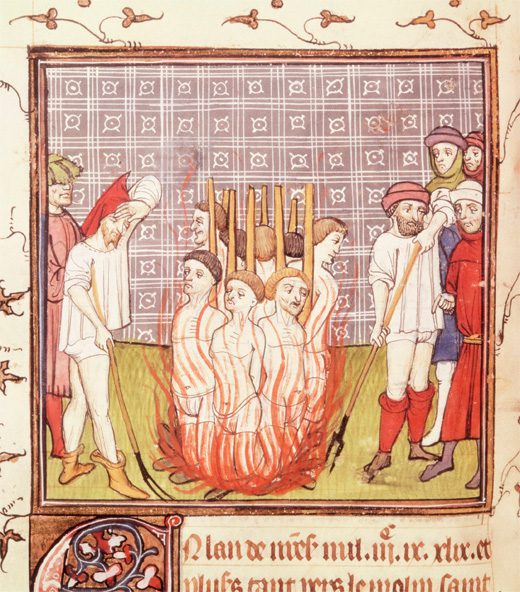 En lan de mil. iiij. ix. xlix. et
tant vers le molin saint